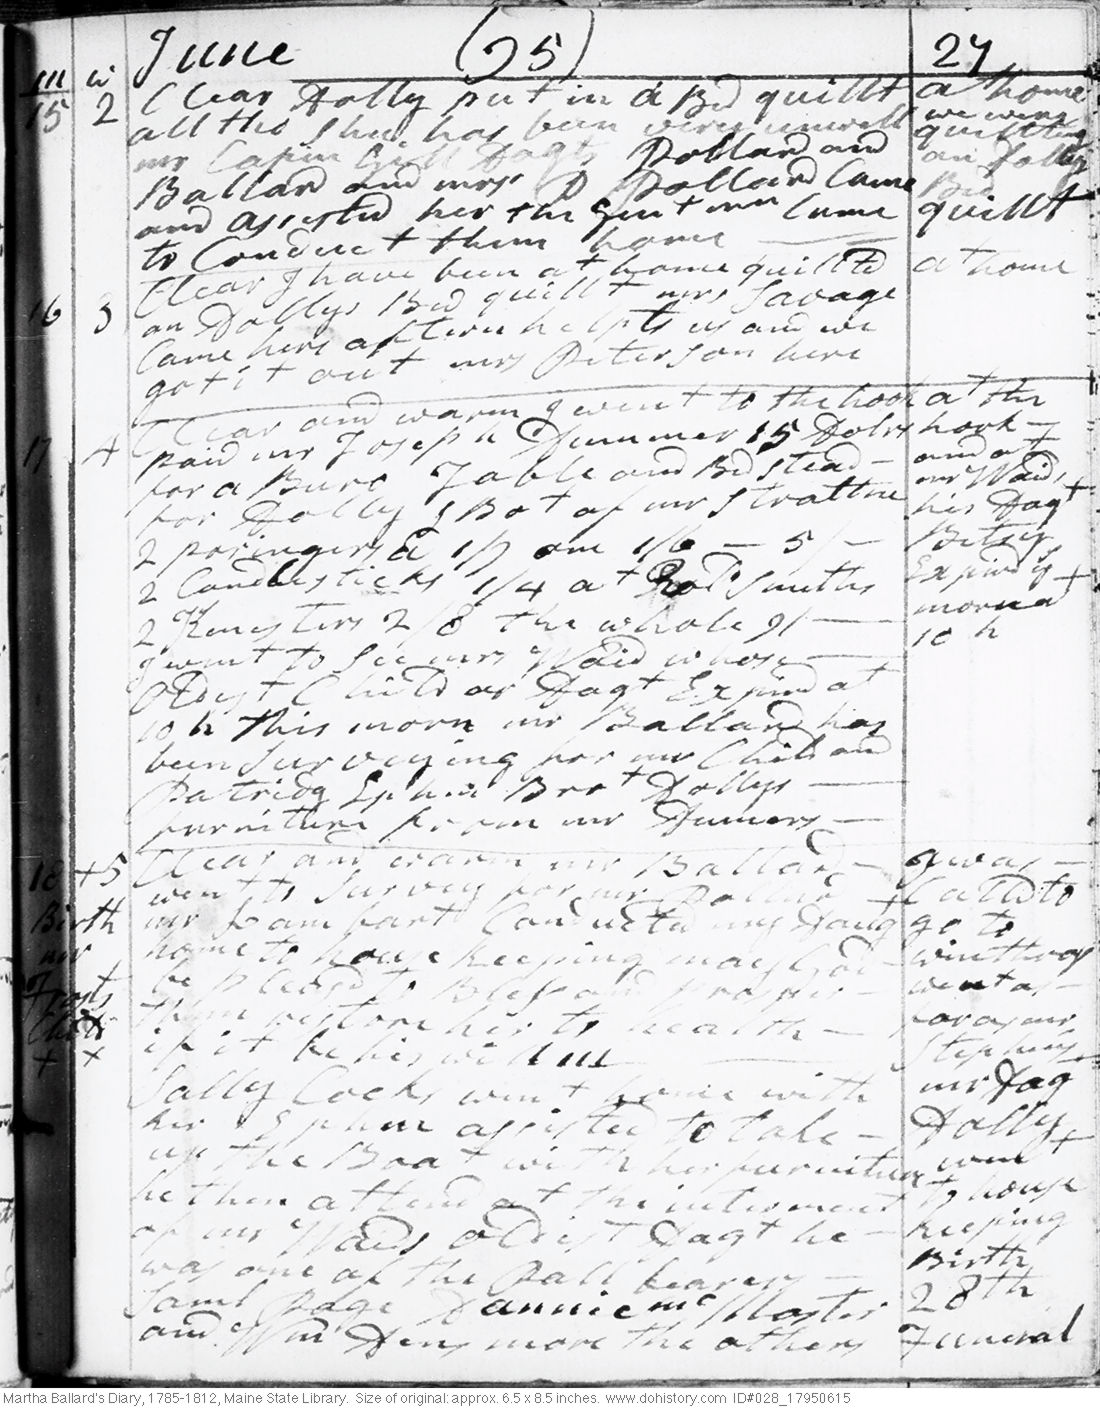 June (25) 27
m w
15 2 Clear Dolly put in a Bed quillt
all tho Shee has been very unwell
mr Capin Gill Dagts Pollard and
Ballard and mrs D Pollard Came
and assisted her the Gentmn Came
to Conduct them home
at home
we were
quillting
on Dollys
Bed
quillt
16 3 Clear I have been at home quiltd
on Dollys Bed quillt mrs Savage
Came here aftern helpts us and we
got it out mrs Peterson here
at home
17 4 Clear and warm I went to the hook
paid mr Joseph Dummer 15 Dolrs
for a Buro Table and Bedstead
for Dolly I Bot of mr Stratten
2 poringers a 1/7 one 1/6 - 5/
2 Candlesticks 1/4 at Smiths
2 Kenesters 2/8 the whole 9/
I went to See mrs Waid whose
oldest Child or Dagt Expird at
10 h this morn mr Ballard has
been Surveying for mr Child and
Patridg Ephm Brot Dollys
furniture from mr Dumers
at the
hook
and at
mr Waids
his Dagt
Betsey
Expird ys
morn at
10 h
18 +5 Clear and warm mr Ballard
went to Survey for mr Pollard
mr Lambart Conducted my Daug
home to house keeping may God
be pleasd to Bless and prosper
them restore her to health
if it be his will
Sally Cocks went home with
her Ephm assisted to take
up the Boat with her furniture
he then attend at the interment
of mr Waids oldest Dagt he
was one of the Pall bearers
Saml Page Dannie mc Master
and Wm Dens more the others
Birth
mr
Child
+ x
I was
Calld to
go to
winthrop
went as
far as mr
Stephens
my Dag
Dolly
went
to house
keeping
Birth
28th
Funeral
Martha Ballard's Diary, 1785-1812, Maine State Library. Size of original: approx. 6.5 x 8.5 inches. www.dohistory.com ID#028_17950615